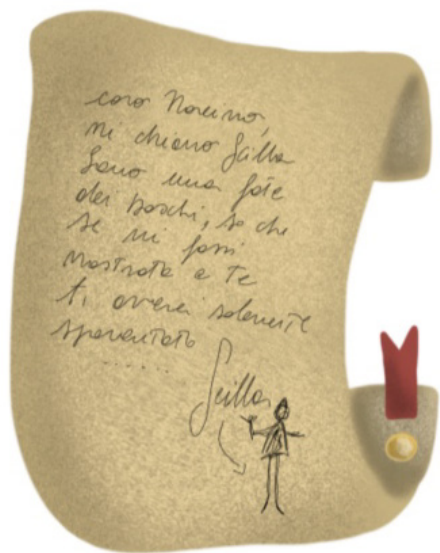 caro Narciso,
mi chiamo Scilla
Sono una fata
dei boschi, so che
se mi fossi
mostrata a Te
ti avrei solamente
spaventato
......
Scilla